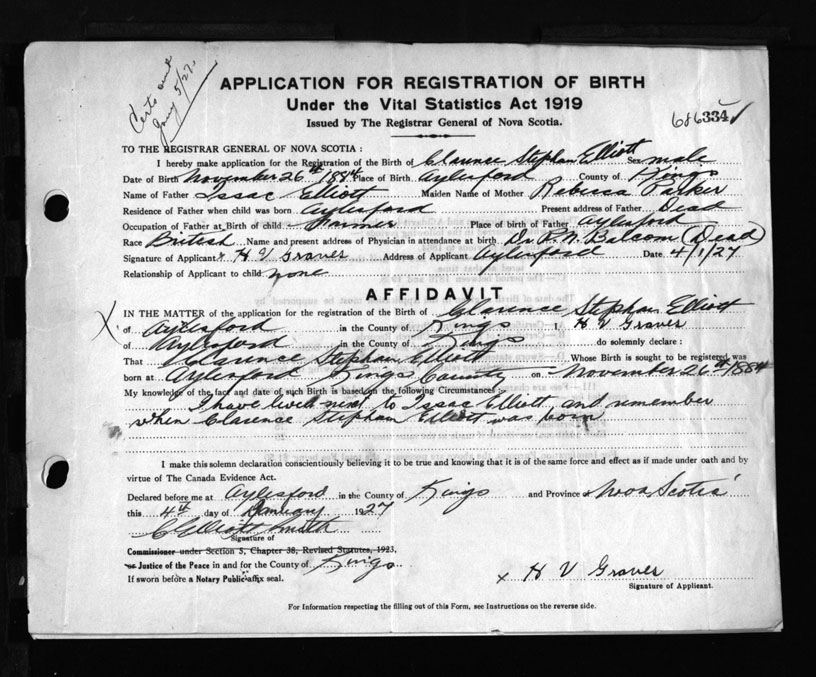 Certs and
Jany 5/27.
APPLICATION FOR REGISTRATION OF BIRTH
Under the Vital Statistics Act 1919
Issued by The Registrar General of Nova Scotia.
686334
TO THE REGISTRAR GENERAL OF NOVA SCOTIA :
I hereby make application for the Registration of the Birth of Clarence Stephan Elliott Sex male
Date of Birth November 26th 1884 Place of Birth Aylesford County of Kings
Name of Father Issac Elliott Maiden Name of Mother Rebecca Parker
Residence of Father when child was born Aylesford Present address of Father Dead
Occupation of Father at Birth of child Farmer Place of birth of Father Aylesford
Race British Name and present address of Physician in attendance at birth Dr R. N. Balcom (Dead)
Signature of Applicant H V Graves Address of Applicant Aylesford Date 4/1/27
Relationship of Applicant to child none
AFFIDAVIT
X IN THE MATTER of the application for the registration of the Birth of Clarence Stephan Elliott
of Aylesford in the County of Kings I, H V Graves
of Aylesford in the County of Kings do solemnly declare :
That Clarence Stephan Elliott Whose Birth is sought to be registered was
born at Aylesford Kings County on November 26th 1884
My knowledge of the fact and date of such Birth is based on the following Circumstances :
I have lived next to Issac Elliott, and remember
when Clarence Stephan Elliott was born
I make this solemn declaration conscientiously believing it to be true and knowing that it is of the same force and effect as if made under oath and by
virtue of The Canada Evidence Act.
Declared before me at Aylesford in the County of Kings and Province of Nova Scotia
this 4th day of January 1927
C Elliott Smith
Signature of
Commissioner under Section 5, Chapter 38, Revised Statutes, 1923,
or Justice of the Peace in and for the County of Kings
If sworn before a Notary Public affix seal.
x H V Graves
Signature of Applicant.
For Information respecting the filling out of this Form, see Instructions on the reverse side.